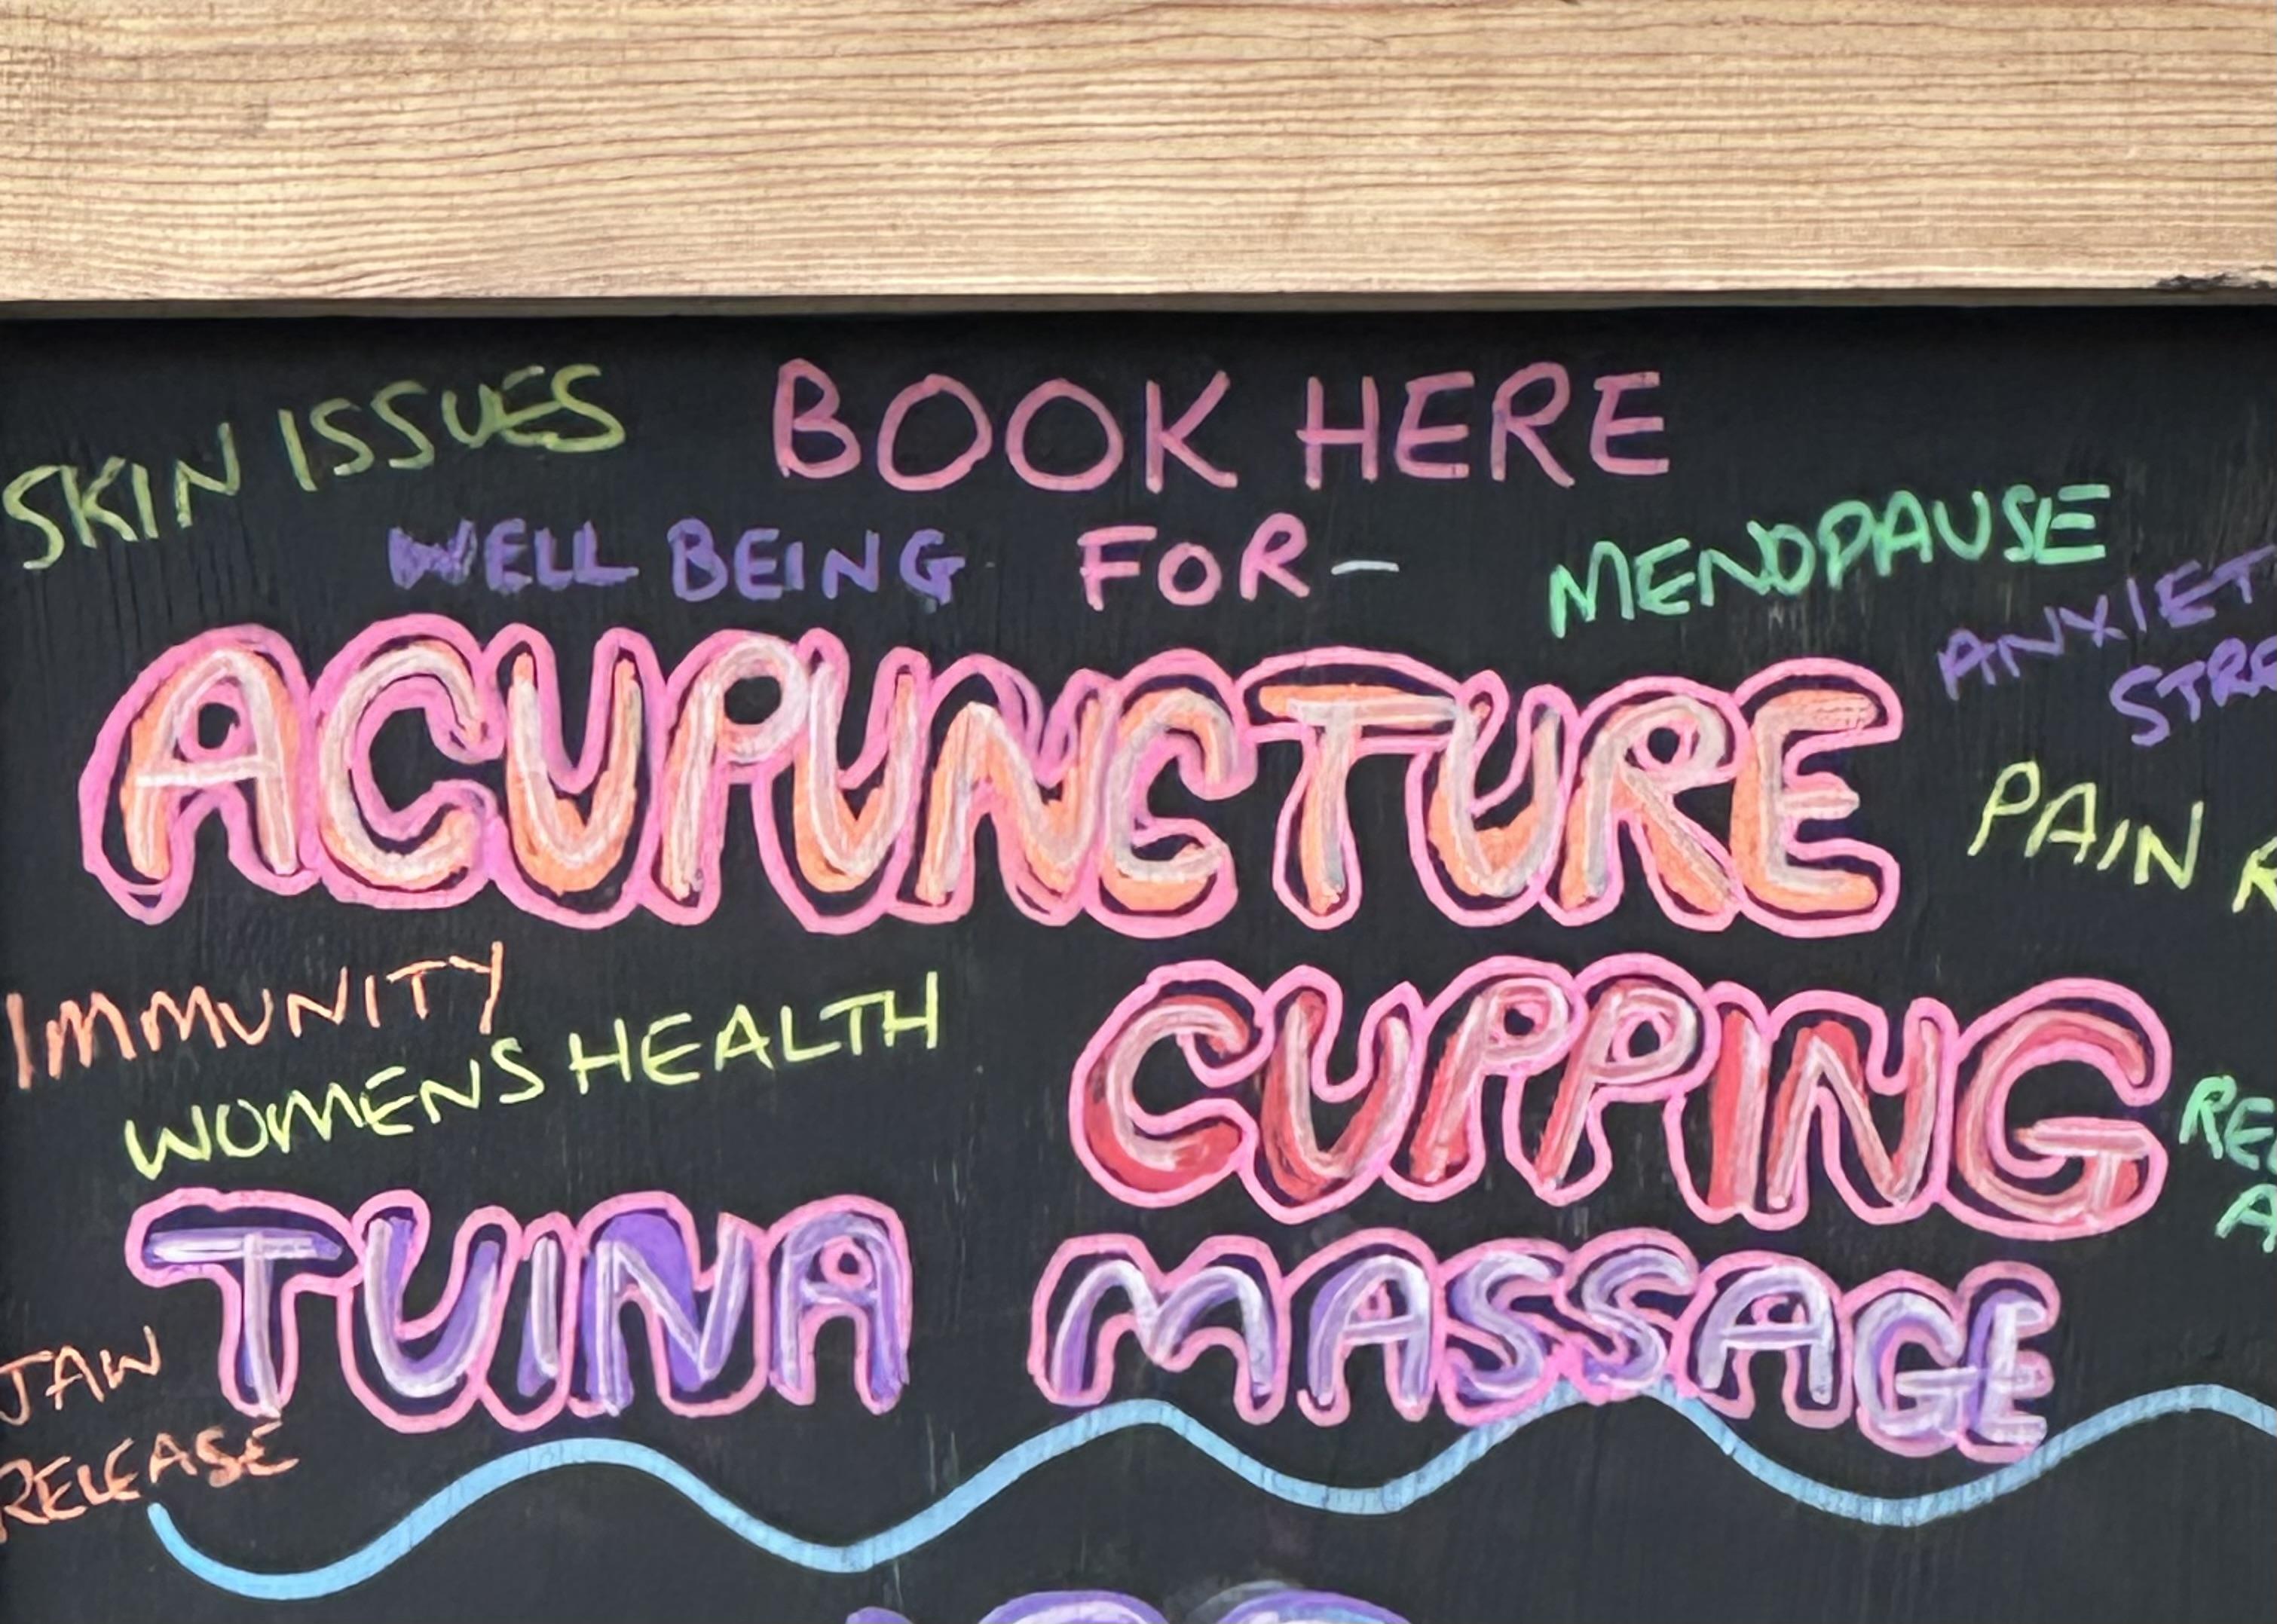 SKIN ISSUES
BOOK HERE
WELL BEING
FOR-
MENOPAUSE
ACUPUNCTURE
PAIN
IMMUNITY
WOMENS HEALTH
CUPPING
TUINA MASSAGE
JAW
RELEASE